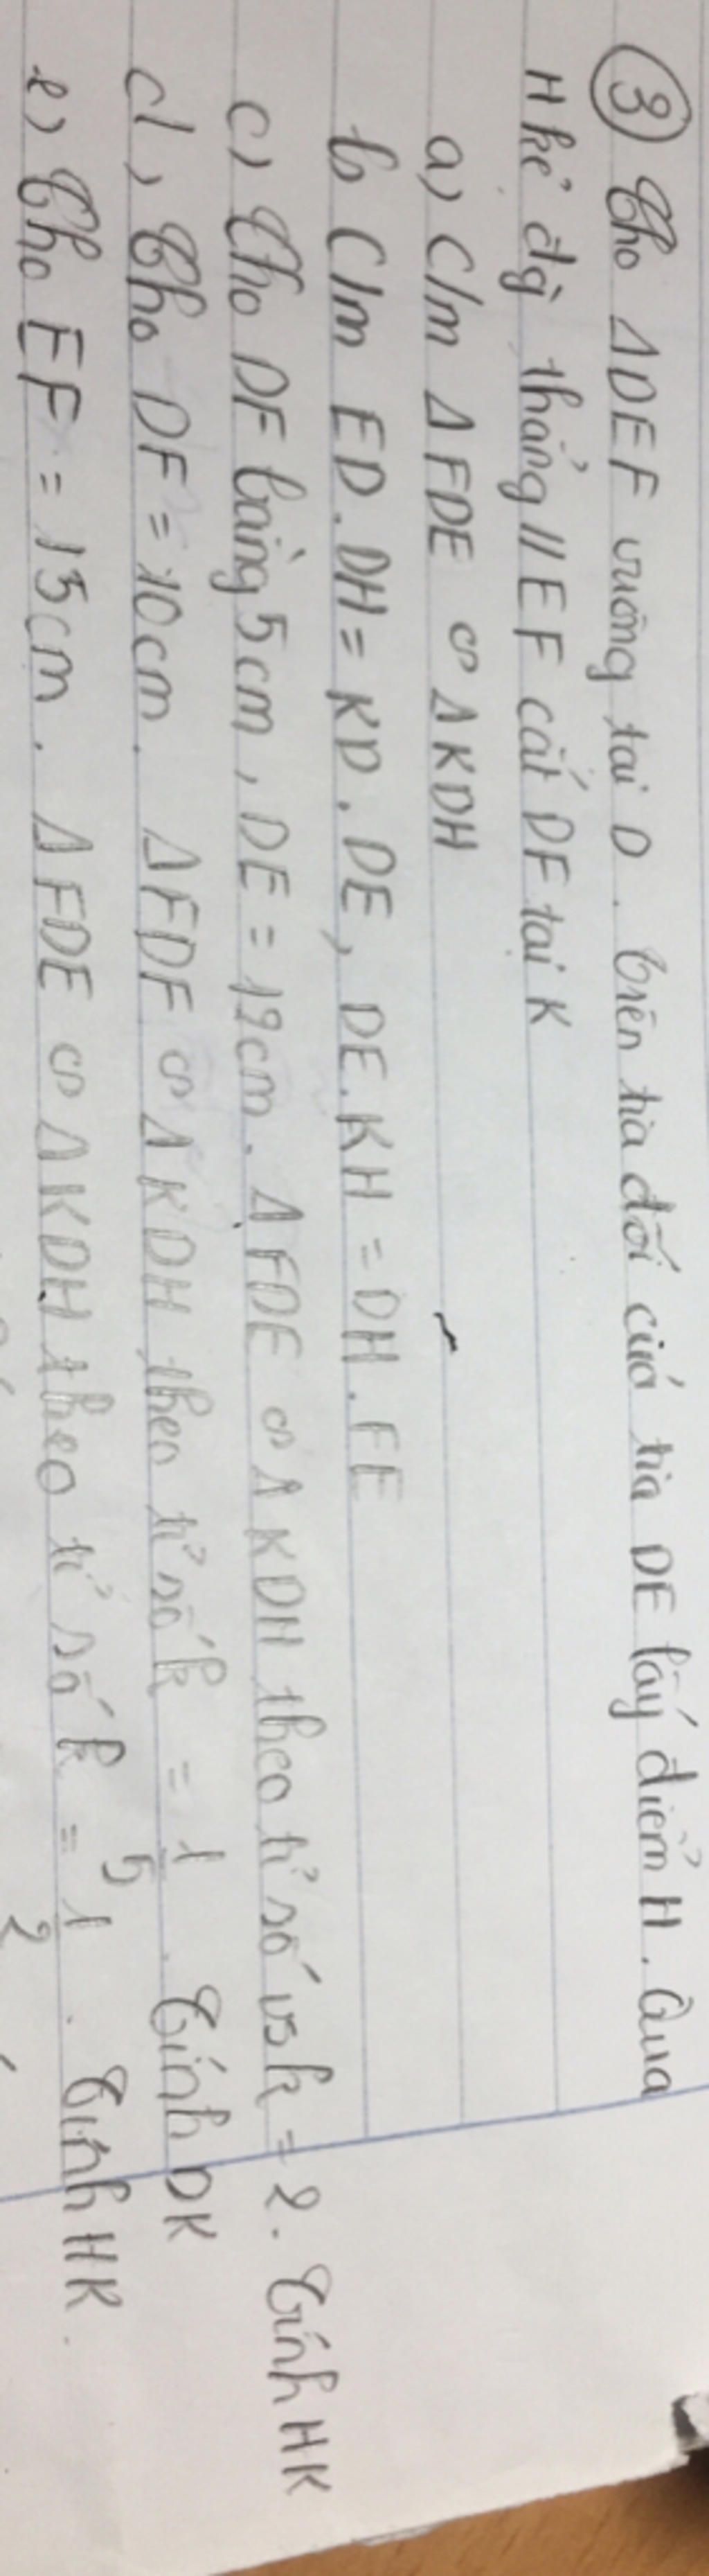 ③ Cho ΔDEF vuông tại D. Trên tia đối của tia DE lấy điểm H. Qua
H kẻ đg thẳng // EF cắt DF tại K
a) C/m ΔFDE ∽ ΔKDH
b) C/m ED.DH = KD.DE, DE.KH = DH.FE
c) Cho DF bằng 5cm, DE = 12cm. ΔFDE ∽ ΔKDH theo tỉ số k = 2. Tính HK
d) Cho DF = 10cm. ΔFDF ∽ ΔKDH theo tỉ số k = 1/5. Tính DK
e) Cho EF = 15cm. ΔFDE ∽ ΔKDH theo tỉ số k = 1/2. Tính HK.